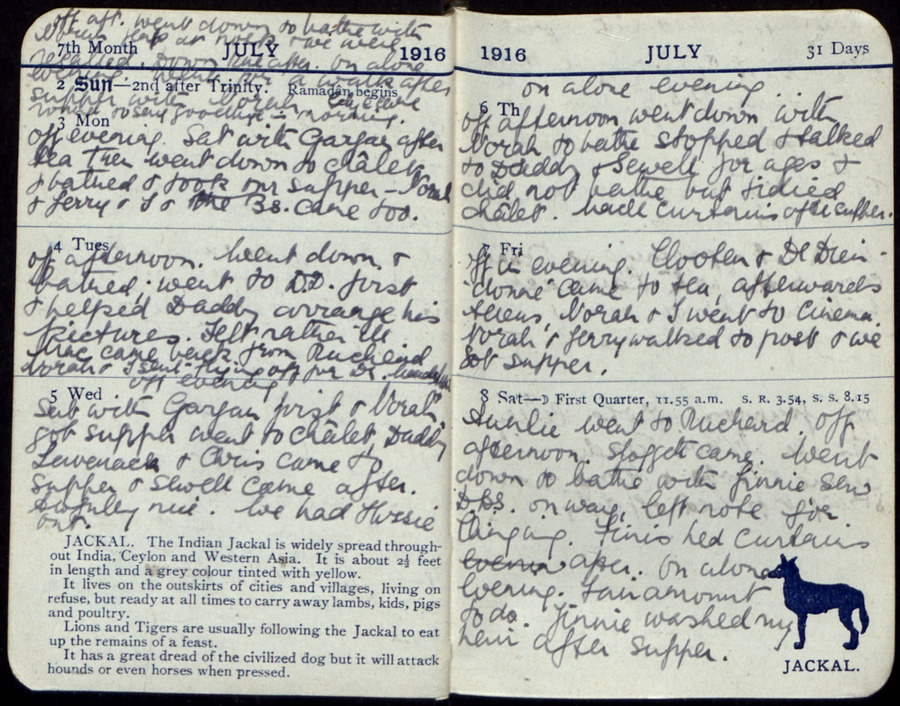 off aft. went down to bathe with
7th Month JULY 1916
recalled. Down after. on alone
evening. went for a walk after
2 Sun—2nd after Trinity. Ramadân begins
supper with Norah.
3 Mon
off evening. Sat with Gargar after
tea then went down to châlet
& bathed & took our supper – Norah
& Jerry & I & the Bs. came too.
4 Tues
off afternoon. Went down &
bathed. went to D.D. first
& helped Daddy arrange his
pictures. Felt rather ill
Mac came back from Ruchend
Norah & I sent flying off for Dr.
off evening
5 Wed
Sat with Gargar first & Norah
got supper went to châlet, Daddy
Lavenack & Chris came to
supper & Sewell came after.
Awfully nice. We had
out.
JACKAL. The Indian Jackal is widely spread through-
out India, Ceylon and Western Asia. It is about 2½ feet
in length and a grey colour tinted with yellow.
It lives on the outskirts of cities and villages, living on
refuse, but ready at all times to carry away lambs, kids, pigs
and poultry.
Lions and Tigers are usually following the Jackal to eat
up the remains of a feast.
It has a great dread of the civilized dog but it will attack
hounds or even horses when pressed.
1916 JULY 31 Days
on alone evening...
6 Th
off afternoon went down with
Norah to bathe stopped & talked
to Daddy & Sewell for ages &
did not bathe but tidied
châlet. Made curtains after supper.
7 Fri
off in evening. Clooten & De Drein-
came to tea, afterwards
Norah & I went to Cinema.
Norah & Jerry walked to post & we
got supper.
8 Sat—☽ First Quarter, 11.55 a.m. S. R. 3.54, S. S. 8.15
Auntie went to Ruchend. Off
afternoon. Stoggett came. Went
down to bathe with Jinnie
D.Bs. on way, left note for
Finished curtains
after. On alone
Evening. Fair amount
to do. Jinnie washed my
hair after supper.
JACKAL.